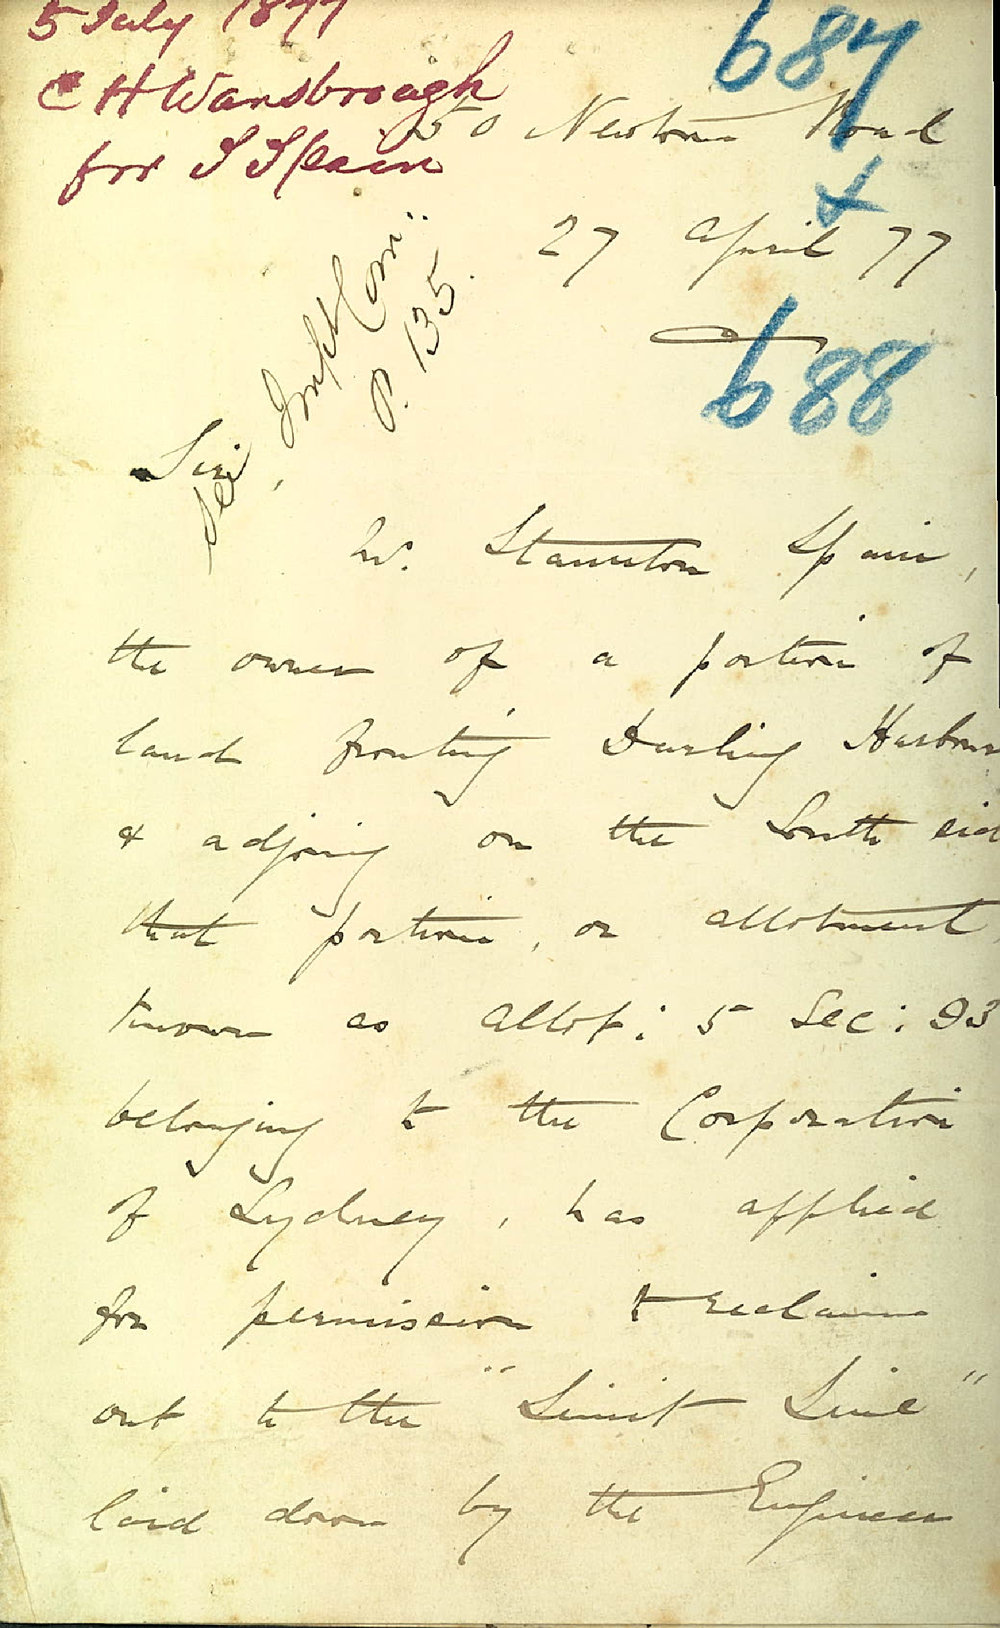 5 July 1877
C H Wansbrough
for S Spain
687
&
688
50 Newtown Road
27 April 77
See Impt Com:
P. 135.
Sir,
Mr. Staunton Spain,
the owner of a portion of
land fronting Darling Harbour
& adjoing on the South sid
that portion, or allotment
known as Allot: 5 Sec: 93
belonging to the Corporation
of Sydney, has applied
for permission to reclaim
out to the "Limit Line"
laid down by the Engineer